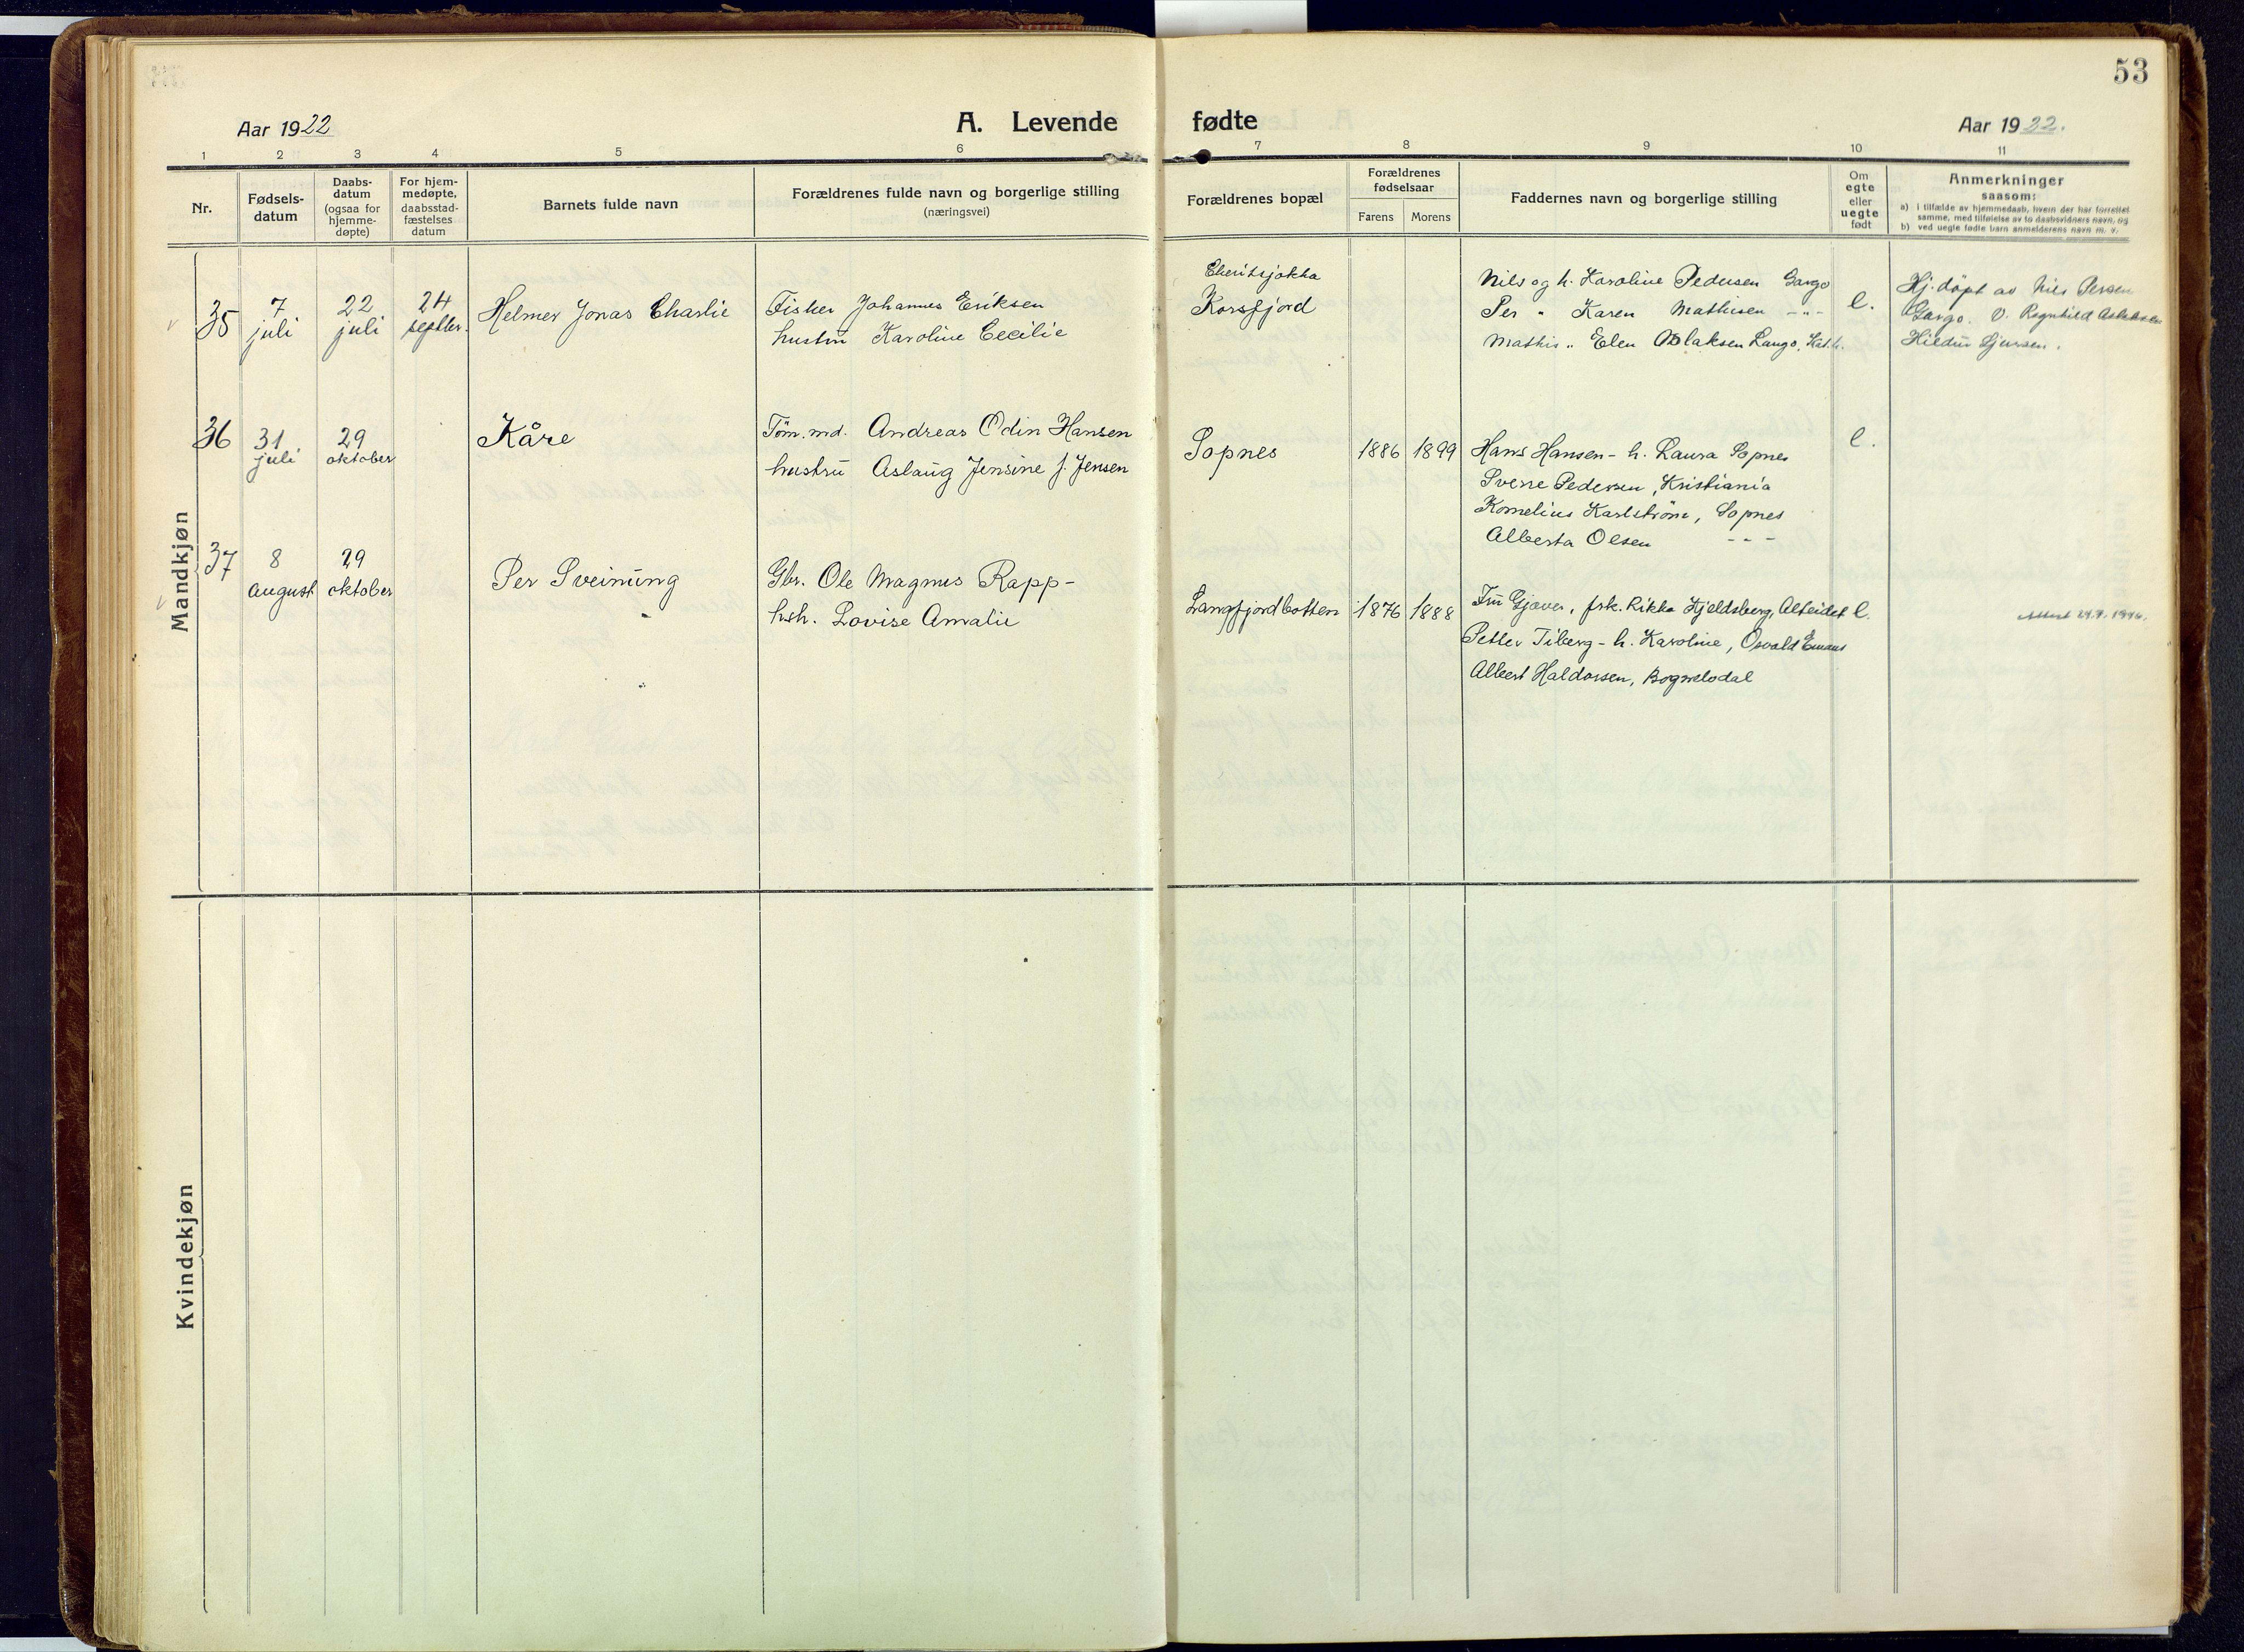 53
Aar 1922
A. Levende fødte
Aar 1922.
1 2 3 4 5 6 7 8 9 10 11
Nr.
Fødsels-
datum
Daabs-
datum
(ogsaa for
hjemme-
døpte)
For hjem-
medøpte,
daabsstad-
fæstelses
datum
Barnets fulde navn
Forældrenes fulde navn og borgerlige stilling
(næringsvei)
Forældrenes bopæl
Forældrenes
fødselsaar
Farens
Morens
Faddernes navn og borgerlige stilling
Om
egte
eller
uegte
født
Anmerkninger
saasom:
a) i tilfælde av hjemmedaab, hvem der har forrettet
samme, med tilføielse av to daabsvidners navn, og
b) ved uegte fødte barn anmelderens navn m. v.
Mandkjøn
35
7
juli
22
juli
24
septbr.
Helmer Jonas Charlie
Fisker Johannes Eriksen
hustru Karoline Cecilie
Korsfjord
Nils og h. Karoline Pedersen Gargo
Per " Karen Mathisen -"-
Mathis " Elen
e.
Hj. döpt av Nils Persen
Gargo. V. Ragnhild Aslaksen
Hildur
36
31
juli
29
oktober
Kåre
Töm.md. Andreas Odin Hansen
hustru Aslaug Jensine f. Jensen
Sopnes
1886
1899
Hans Hansen - h. Laura Sopnes
Sverre Pedersen, Kristiania
Kornelius Karlström, Sopnes
Alberta Olsen - - -
e.
37
8
august
29
oktober
Per Sveinung
Gbr. Ole Magnus Rapp -
hsh. Lovise Amalie
Langfjordbotten
1876
1888
Fru Gjæver, frk. Rikka Hjeldsberg, Alteidet
Petter Tiberg - h. Karoline, Osvald Emaus
Albert Haldorsen, Bognelvdal
e.
Attest 24.9. 1946.
Kvindekjøn